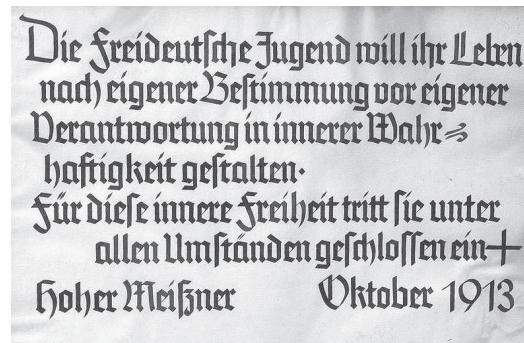 Die Freideutsche Jugend will ihr Leben
nach eigener Bestimmung vor eigener
Verantwortung in innerer Wahr=
haftigkeit gestalten.
Für diese innere Freiheit tritt sie unter
allen Umständen geschlossen ein+
Hoher Meißner Oktober 1913